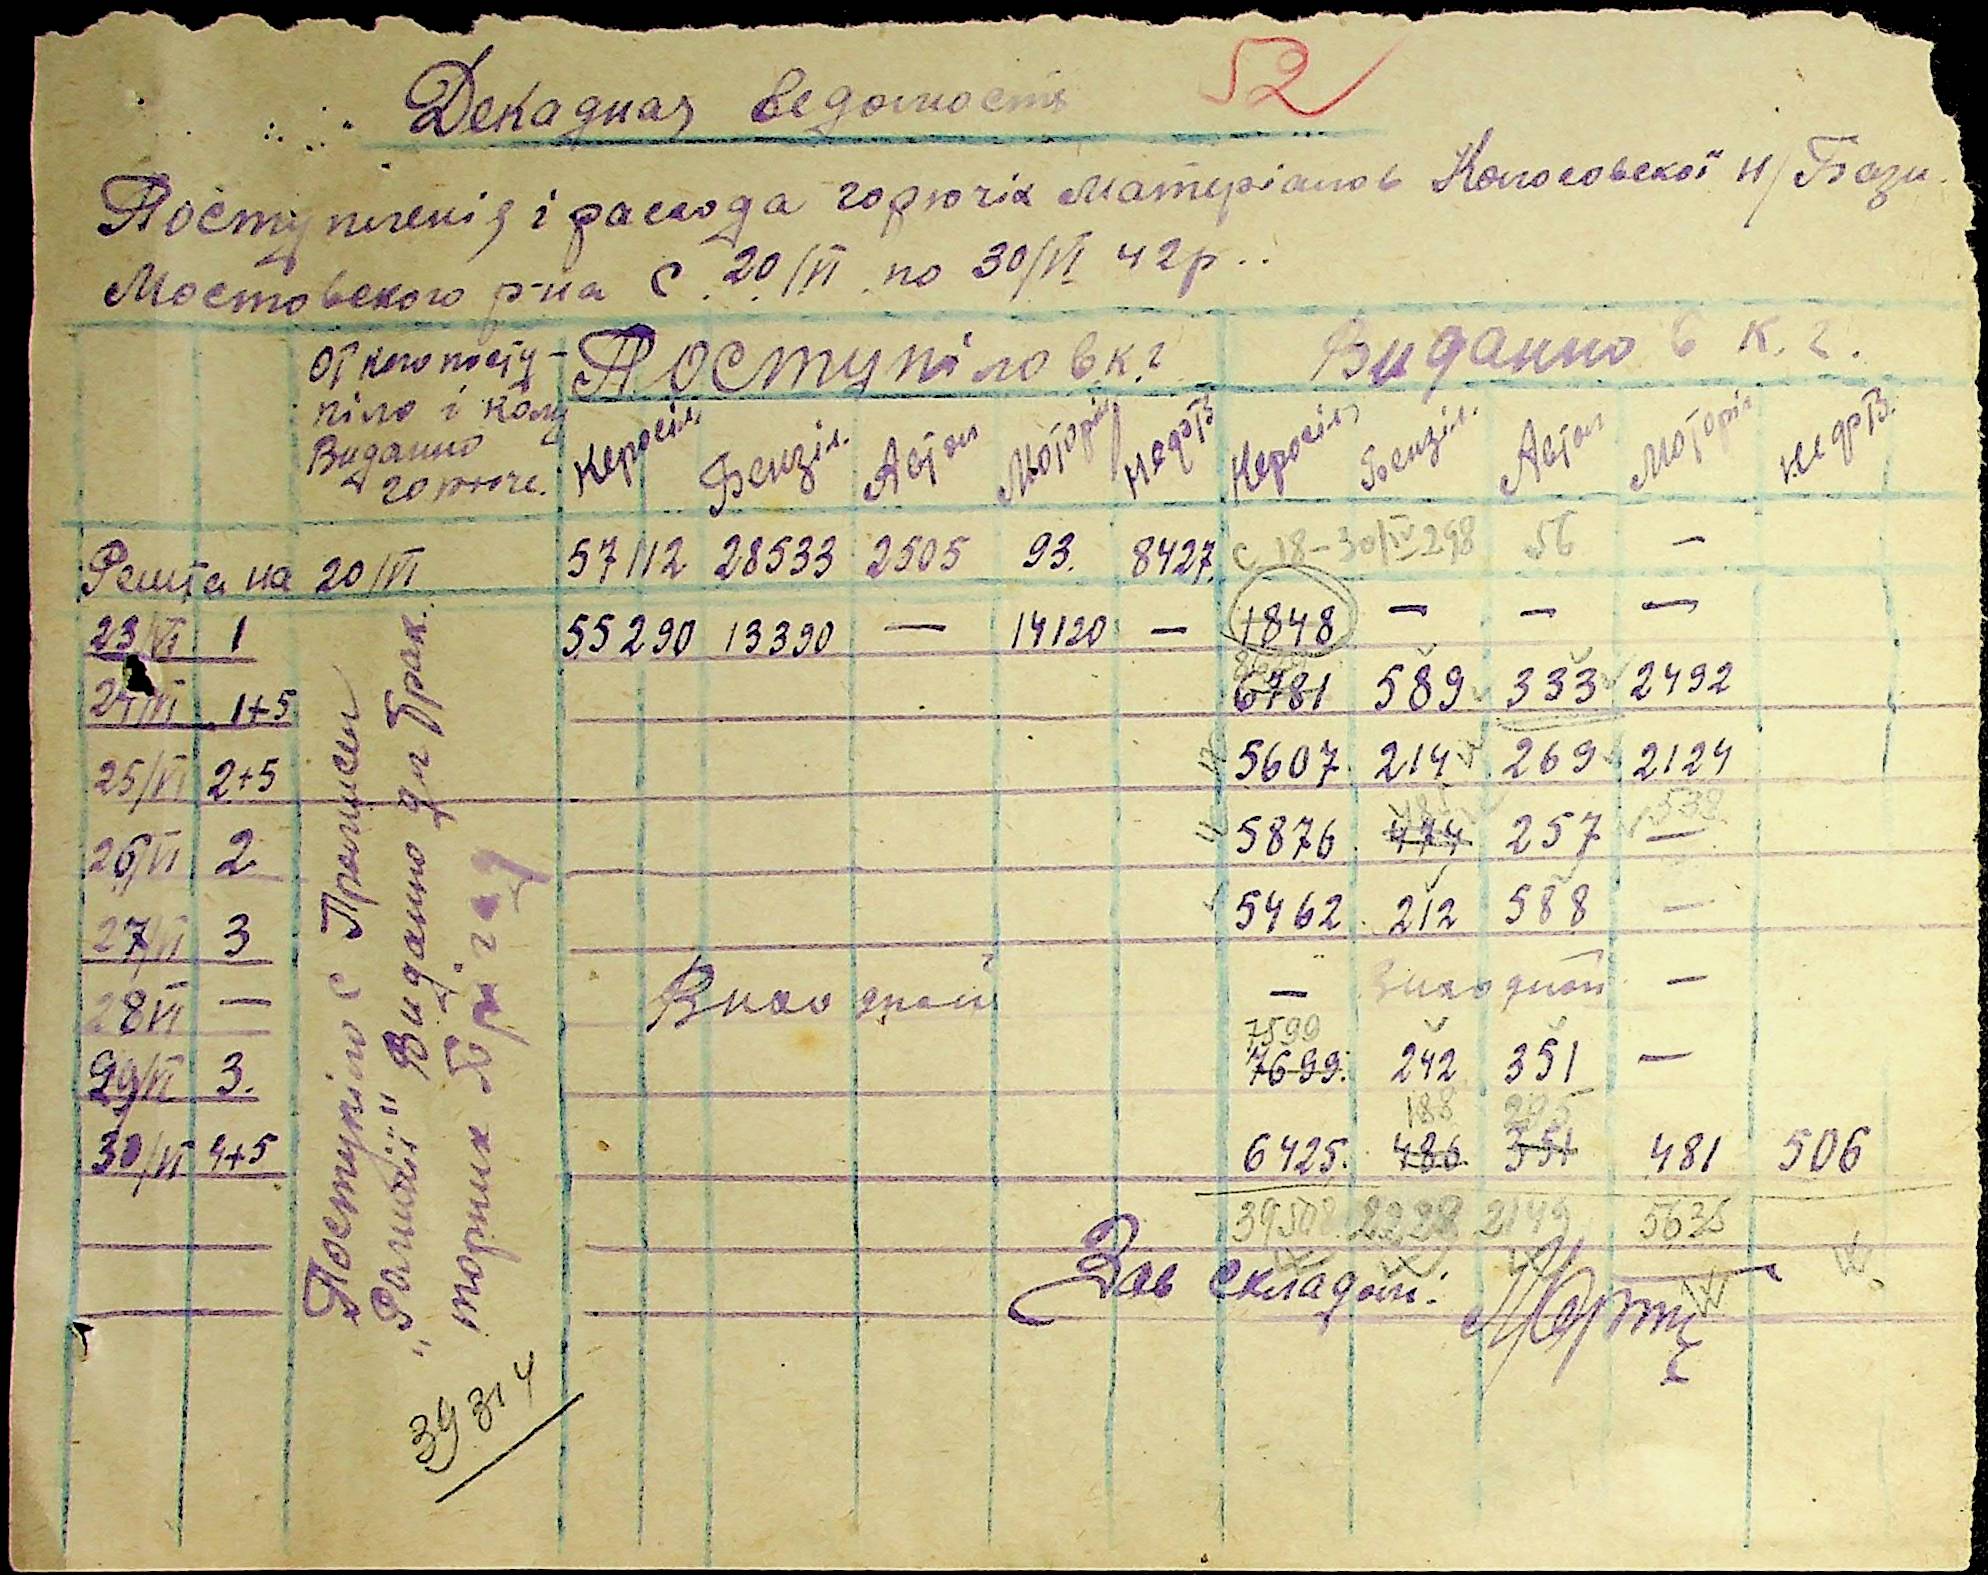 52
Декадная ведомость
Поступленія і расхода горючіх матеріалов Колосовскоі н/Бази
Мостовского р-на с 20/VI по 30/VI 42р..
От кого посту-
піло і кому
Виданно
горюче.
Поступіло в к.г
Виданно в к.г.
Керосін Бензін. Автол Моторін Нефть Керосін Бензін. Автол Моторін Нефть.
Решта на 20/VI 57112 28533 2505 93. 8427. с 18-30/IV 298 56 —
23/VI 1 55290 13390 — 14120 — 1848 — — —
24/VI 1+5 6781 589 333 2492
25/VI 2+5 5607 214 269 2124
538
26/VI 2 5876 474 257 —
27/VI 3 5462 212 588 —
28VI — Виходной — Виходной —
7599
29/VI 3. 7699. 242 351 —
188 295
30/VI 4+5 6425. 486 551 481 506
39508 2228 2149 5635
Поступіло с
Виданно для Трак.
торних бригад
Зав складом:
39314